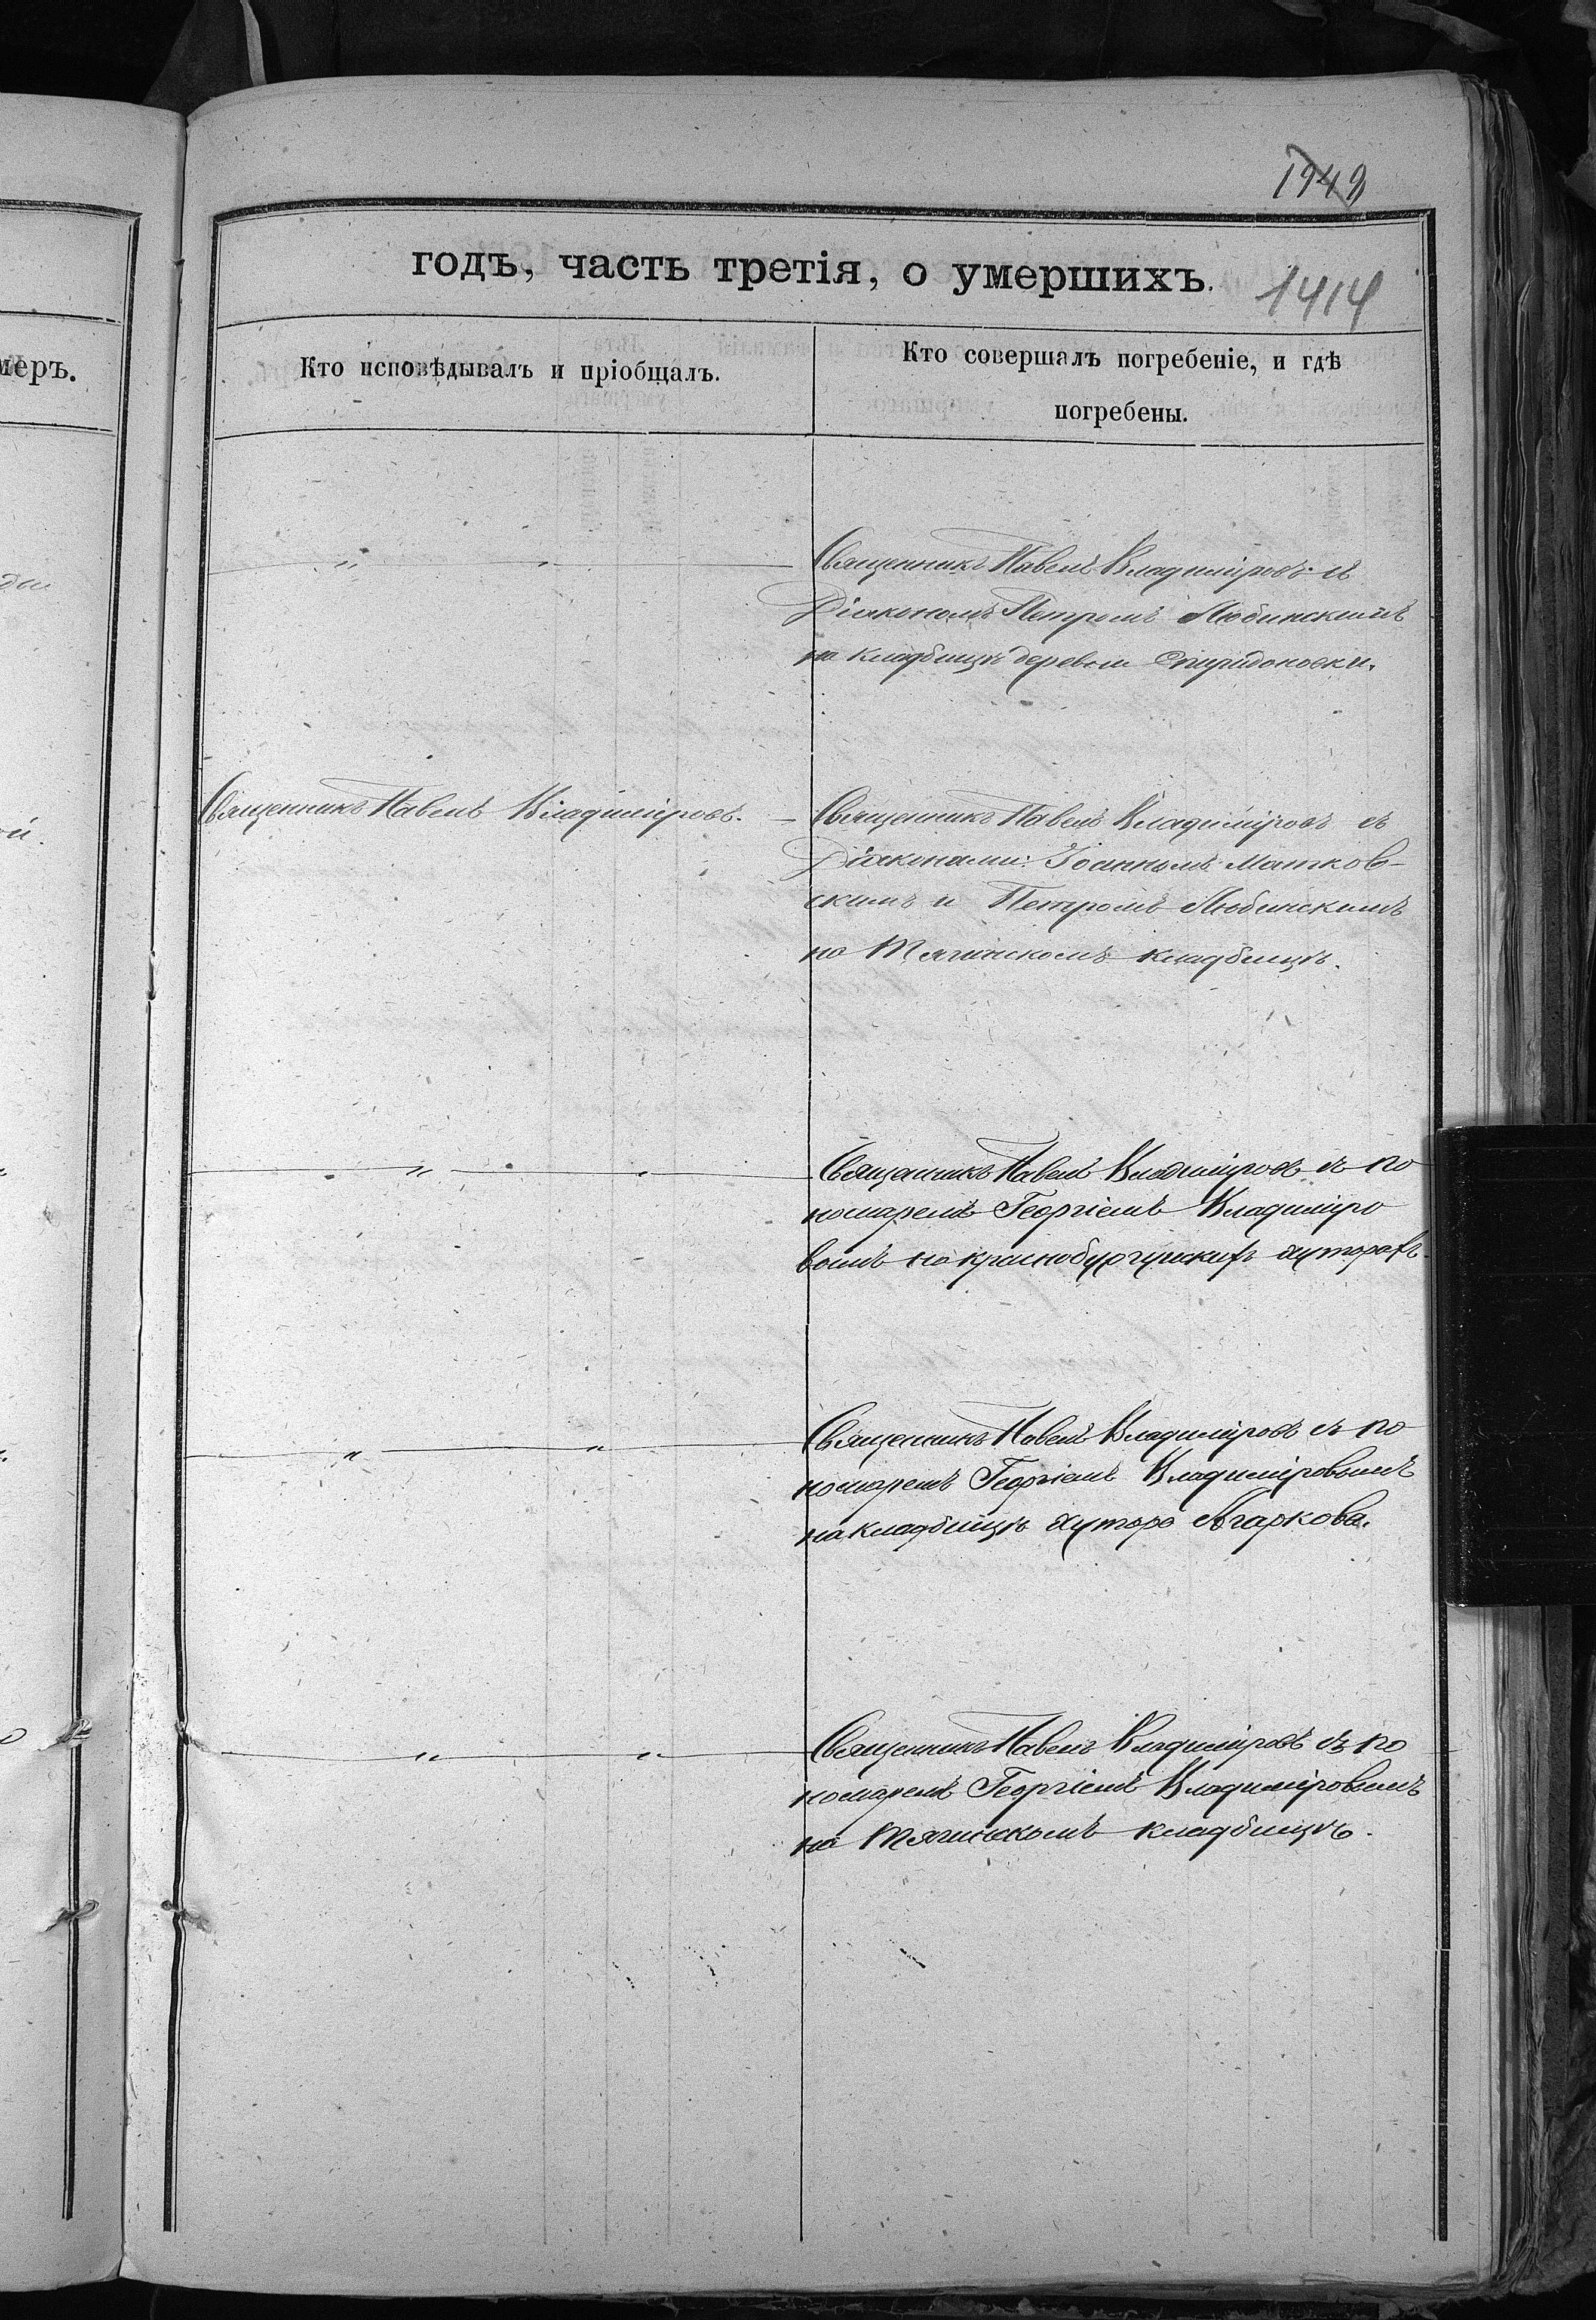 1949
годъ, часть третія, о умершихъ.
1414
меръ.
Кто исповѣдывалъ и пріобщалъ.
Кто совершалъ погребеніе, и гдѣ
погребены.
Священникъ Павелъ Владиміровъ съ
Діакономъ Петромъ Любинскимъ
на кладбищѣ деревни Спиридоновки.
Священникъ Павелъ Владиміровъ.
Священникъ Павелъ Владиміровъ съ
Діаконами: Іоанномъ Матков-
скимъ и Петромъ Любинскимъ
на Тягинскомъ кладбищѣ.
Священникъ Павелъ Владиміровъ съ по
номаремъ Георгіемъ Владиміро
вымъ на хуторахъ.
Священникъ Павелъ Владиміровъ съ по
номаремъ Георгіемъ Владиміровымъ
на кладбищѣ хутора Агаркова.
Священникъ Павелъ Владиміровъ съ по
номаремъ Георгіемъ Владиміровымъ
на Тягинскомъ кладбищѣ.